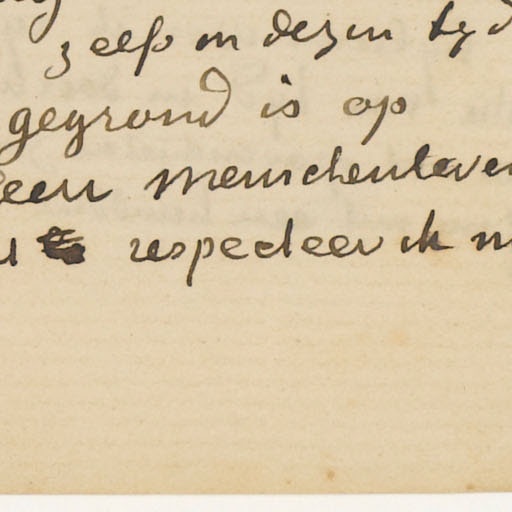 zelfs in dezen tyd
gegrond is op
een menschenleven
respecteer ik